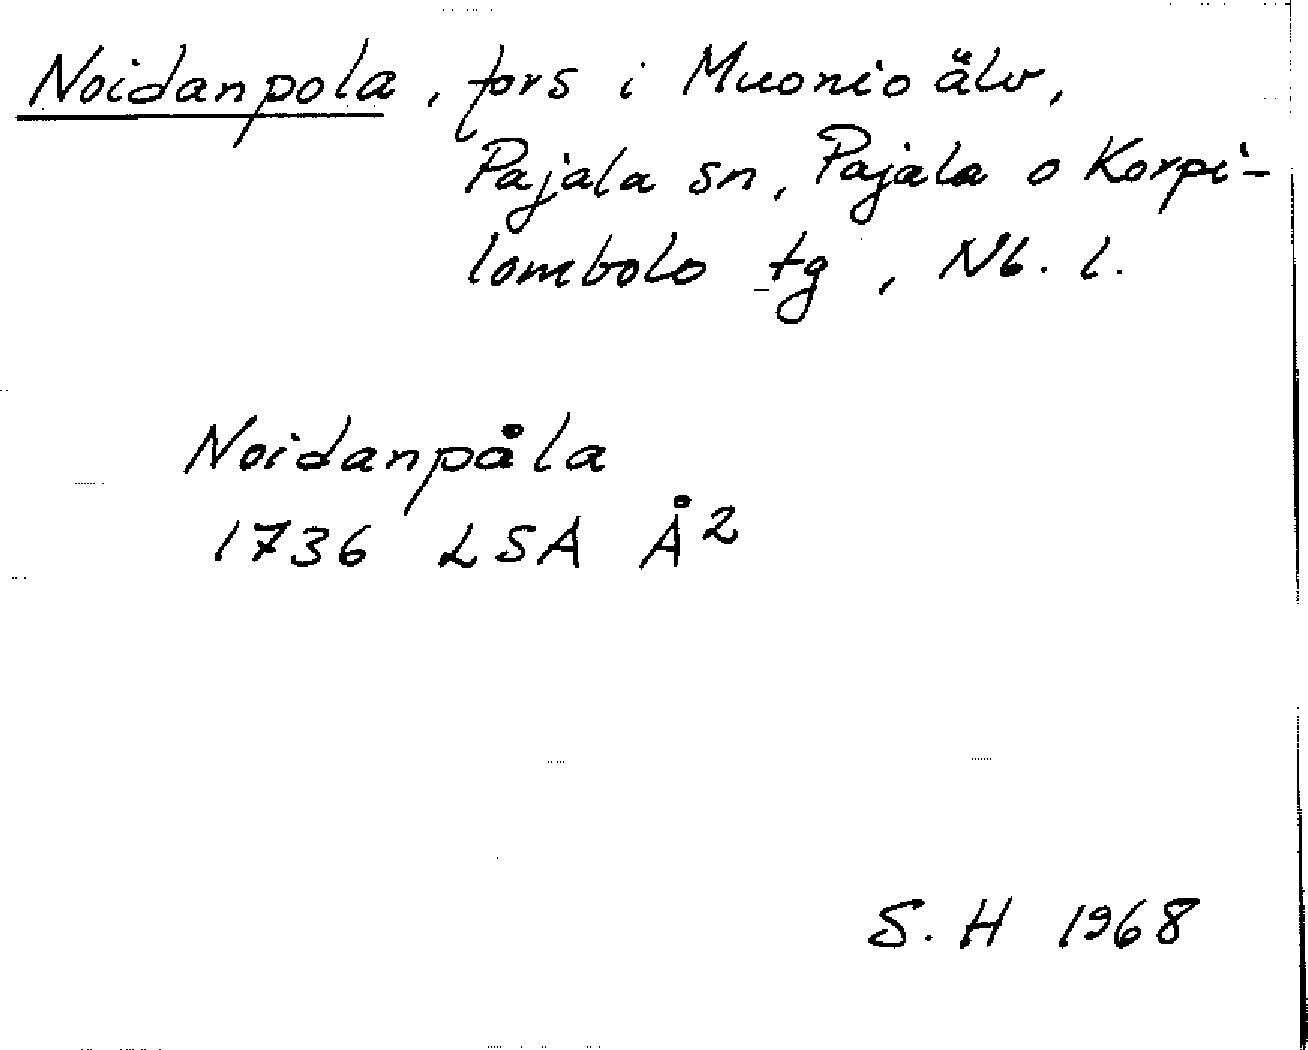 Noidanpola, fors i Muonio älv,
Pajala sn, Pajala o Korpi-
lombolo tg, Nb. l.
Noidanpåla
1736 LSA Å2
S. H 1968